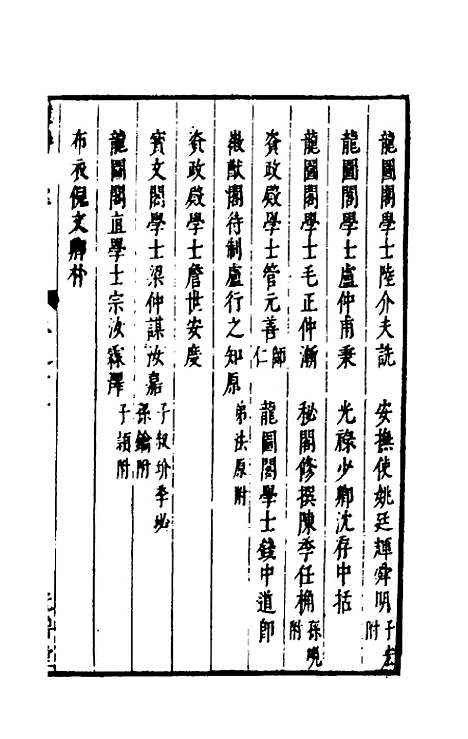 龍圖閣學士陸介夫詵　安撫使姚廷輝舜明子宏附
龍圖閣學士盧仲甫秉　光祿少卿沈存中括
龍圖閣學士毛正仲漸　秘閣修撰陳季任桷孫峴附
資政殿學士管元善師仁　龍圖閣學士錢中道即
徽猷閣待制盧行之知原弟法原附
資政殿學士詹世安度
寶文閣學士梁仲謀汝嘉子叔玠季珌孫鑰附
龍圖閣直學士宗汝霖澤子穎附
布衣倪文卿朴